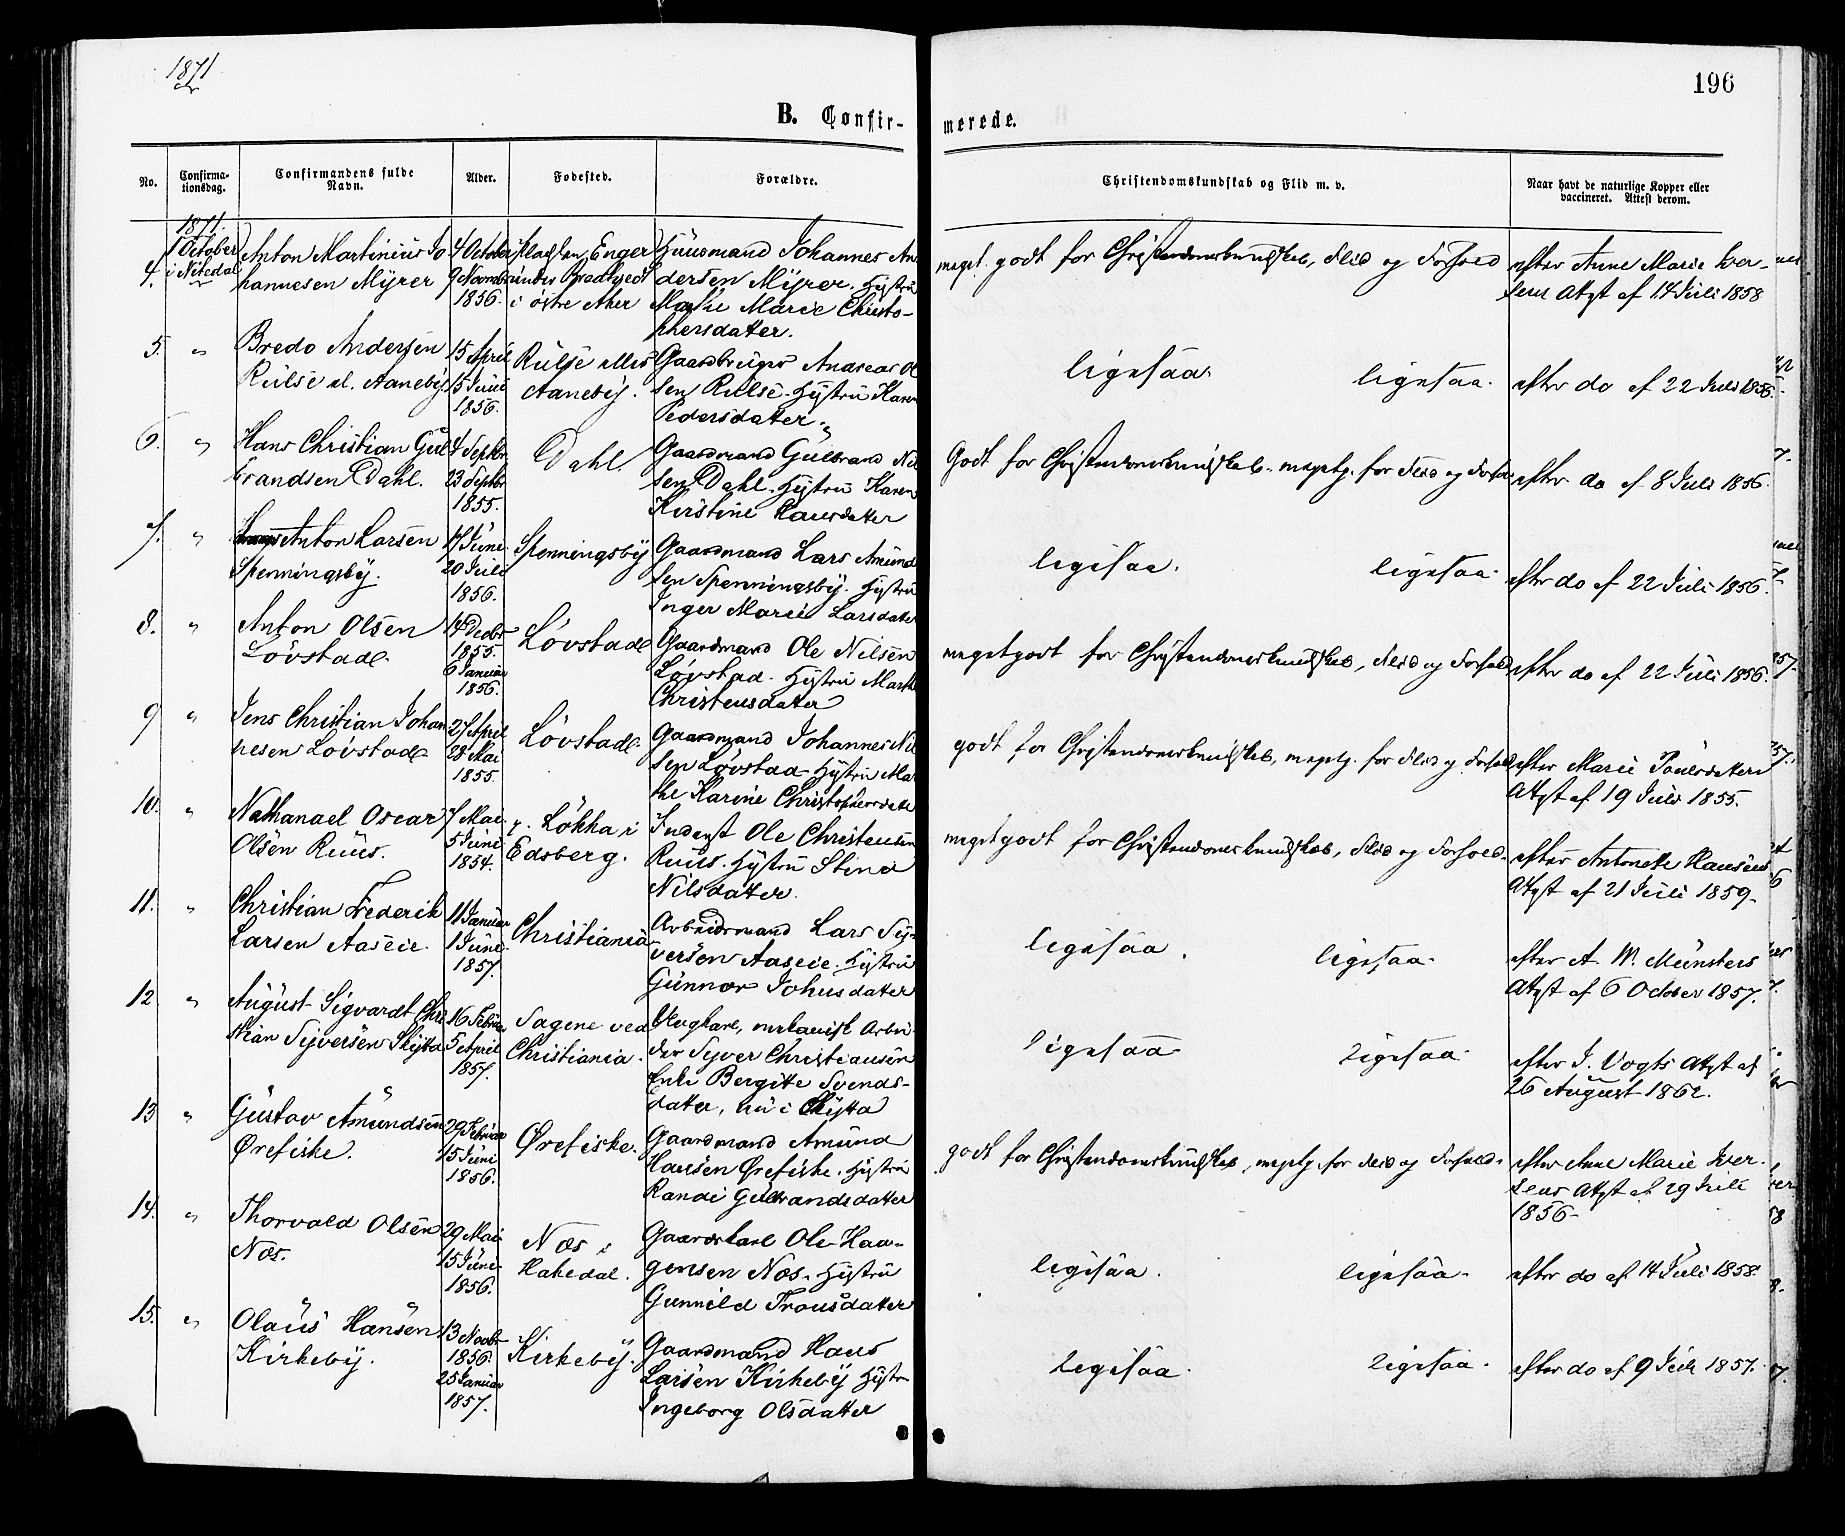 1871
196
B. Confir-
merede.
No.
Confirma-
tionsdag.
Confirmandens fulde
Navn.
Alder.
Fødested.
Forældre.
Christendomskundskab og Flid m. v.
Naar havt de naturlige Kopper eller
vaccineret. Attest derom.
1871.
1 October
i Nitedal
4.
Anton Martinius Jo
hannesen Myrer
4 October
9 Novembr
1856.
Pladsen Enger
under Bradtvedt
i østre Aker
Huusmand Johannes An
dersen Myrer. Hustru
Marthe Marie Christo-
phersdatter.
meget godt for Christendomskundskab, Flid og Forhold
efter Anne Marie Iver-
sens Attest af 14 Juli 1858
5. "
Bredo Andersen
Rulse el. Aaneby
15 April
15 Juni
1856.
Rulse eller
Aaneby.
Gaardbruger Andreas Ol
sen Rulse. Hustru Karen
Pedersdatter.
ligesaa. ligesaa.
efter do af 22 Juli 1856.
6. "
Hans Christian Gul
brandsen Dahl.
4 Septbr
23 Septbr
1855.
Dahl.
Gaardmand Gulbrand Nil
sen Dahl. Hustru Karen
Kirstine Hansdatter
Godt for Christendomskundskab. megetg. for Flid og Forhold
efter do af 8 Juli 1856.
7. "
Anton Larsen
Spenningsby.
17 Juni
20 Juli
1856.
Spenningsby
Gaardmand Lars Amund
sen Spenningsby. Hustru
Inger Marie Larsdatter
ligesaa. ligesaa.
efter do af 22 Juli 1856.
8. "
Anton Olsen
Løvstad.
14 Decbr
1855.
6 Januar
1856.
Løvstad
Gaardmand Ole Nilsen
Løvstad. Hustru Marthe
Christensdatter
meget godt for Christendomskundskab, Flid og Forhold
efter do af 22 Juli 1856.
9 "
Jens Christian Johan
nesen Løvstad
27 April
28 Mai
1855.
Løvstad.
Gaardmand Johannes Nil
sen Løvstad Hustru Mar
the Karine Christophersdatter
godt for Christendomskundskab, megetg. for Flid og Forhold
efter Marie Poulsdatters
Attest af 19 Juli 1855.
10. "
Nathanael Oscar
Olsen Ruus.
7 Mai
5 Juni
1854.
p. Løkka i
Edsberg.
Inderst Ole Christensen
Ruus. Hustru Stina
Nilsdatter.
meget godt for Christendomskundskab, Flid og Forhold.
efter Antonette Hansens
Attest af 21 Juli 1859.
11. "
Christian Frederik
Larsen Aaseie.
11 Januar
1 Juni
1857.
Christiania
Arbeidsmand Lars Sy-
versen Aaseie. Hustru
Gunnor Johnsdatter
ligesaa. ligesaa.
efter A. W. Münsters
Attest af 6 October 1857.
12 "
August Sigvardt Chri
stian Syversen Skytta
16 Februar
5 April
1857.
Sagene ved
Christiania.
Ungkarl, mekanisk Arbei
der Syver Christiansen
Enke Bergitte Svends-
datter, nu i Skytta
ligesaa ligesaa.
efter J. Vogts Attest af
26 August 1862.
13 "
Gustav Amundsen
Ørefiske.
29 Februar
15 Juni
1856.
Ørefiske.
Gaardmand Amund
Hansen Ørefiske. Hustru
Randi Gulbrandsdatter
godt for Christendomskundskab, megetg. for Flid og Forhold.
efter Anne Marie Iver-
sens Attest af 29 Juli
1856.
14. "
Thorvald Olsen
Næs.
29 Mai
15 Juni
1856.
Næs i
Hakedal.
Gaardkarl Ole Haa-
gensen Næs. Hustru
Gunnild Tronsdatter
ligesaa. ligesaa.
efter do af 14 Juli 1858.
15. "
Olaus Hansen
Kirkeby.
13 Novbr
1856.
25 Januar
1857.
Kirkeby.
Gaardmand Hans
Larsen Kirkeby Hustru
Ingeborg Olsdatter
Ligesaa. ligesaa.
efter do af 9 Juli 1857.